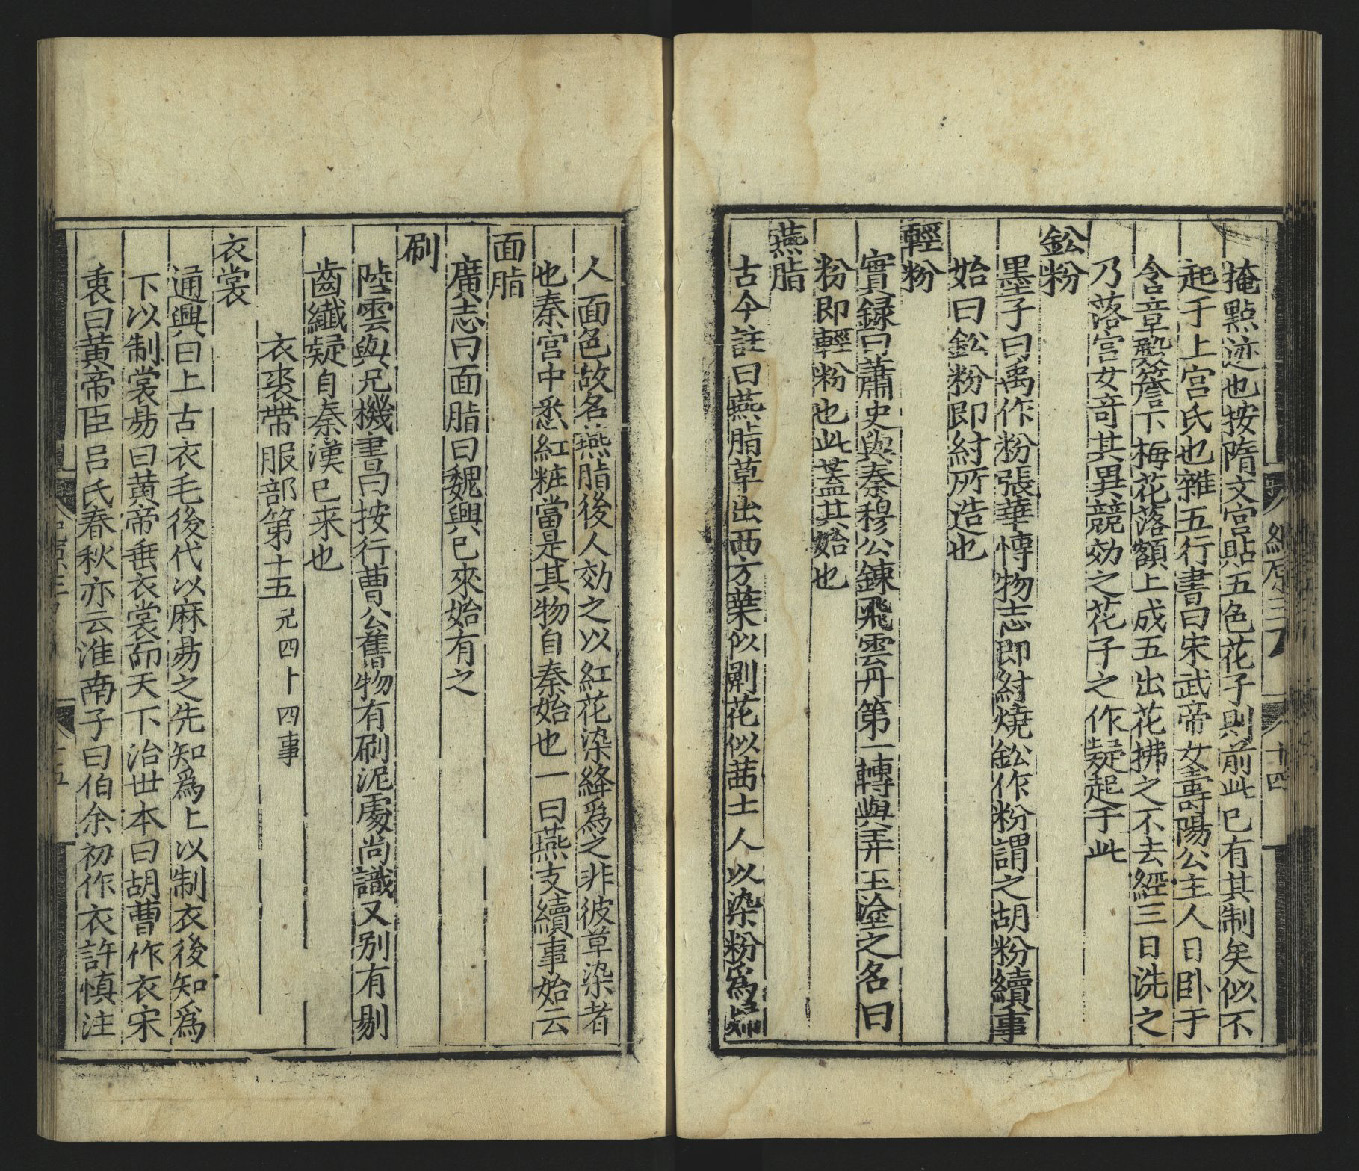 掩點迹也按隋文宮貼五色花子則前此已有其制矣似不
起于上宮氏也雜五行書曰宋武帝女壽陽公主人日卧于
含章殿簷下梅花落額上成五出花拂之不去經三日洗之
乃落宮女竒其異競効之花子之作疑起于此
鈆粉
墨子曰禹作粉張華愽物志即紂燒鈆作粉謂之胡粉續事
始曰鈆粉即紂所造也
輕粉
實録曰蕭史與秦穆公鍊飛雲丹第一轉與弄玉塗之名曰
粉即輕粉也此蓋其始也
燕脂
古今註曰燕脂草出西方葉似薊花似茜土人以染粉爲
人面色故名燕脂後人効之以紅花染絳爲之非彼草染者
也秦宮中悉紅粧當是其物自秦始也一曰燕支續事始云
面脂
廣志曰面脂曰魏興已來始有之
刷
陸雲與兄機書曰按行曹公舊物有刷泥處尚識又别有剔
齒纖疑自秦漢已来也
衣裘帶服部第十五 凡四十四事
衣裳
通典曰上古衣毛後代以麻易之先知爲上以制衣後知爲
下以制裳易曰黄帝垂衣裳而天下治世本曰胡曹作衣宋
衷曰黄帝臣吕氏春秋亦云淮南子曰伯余初作衣許慎注